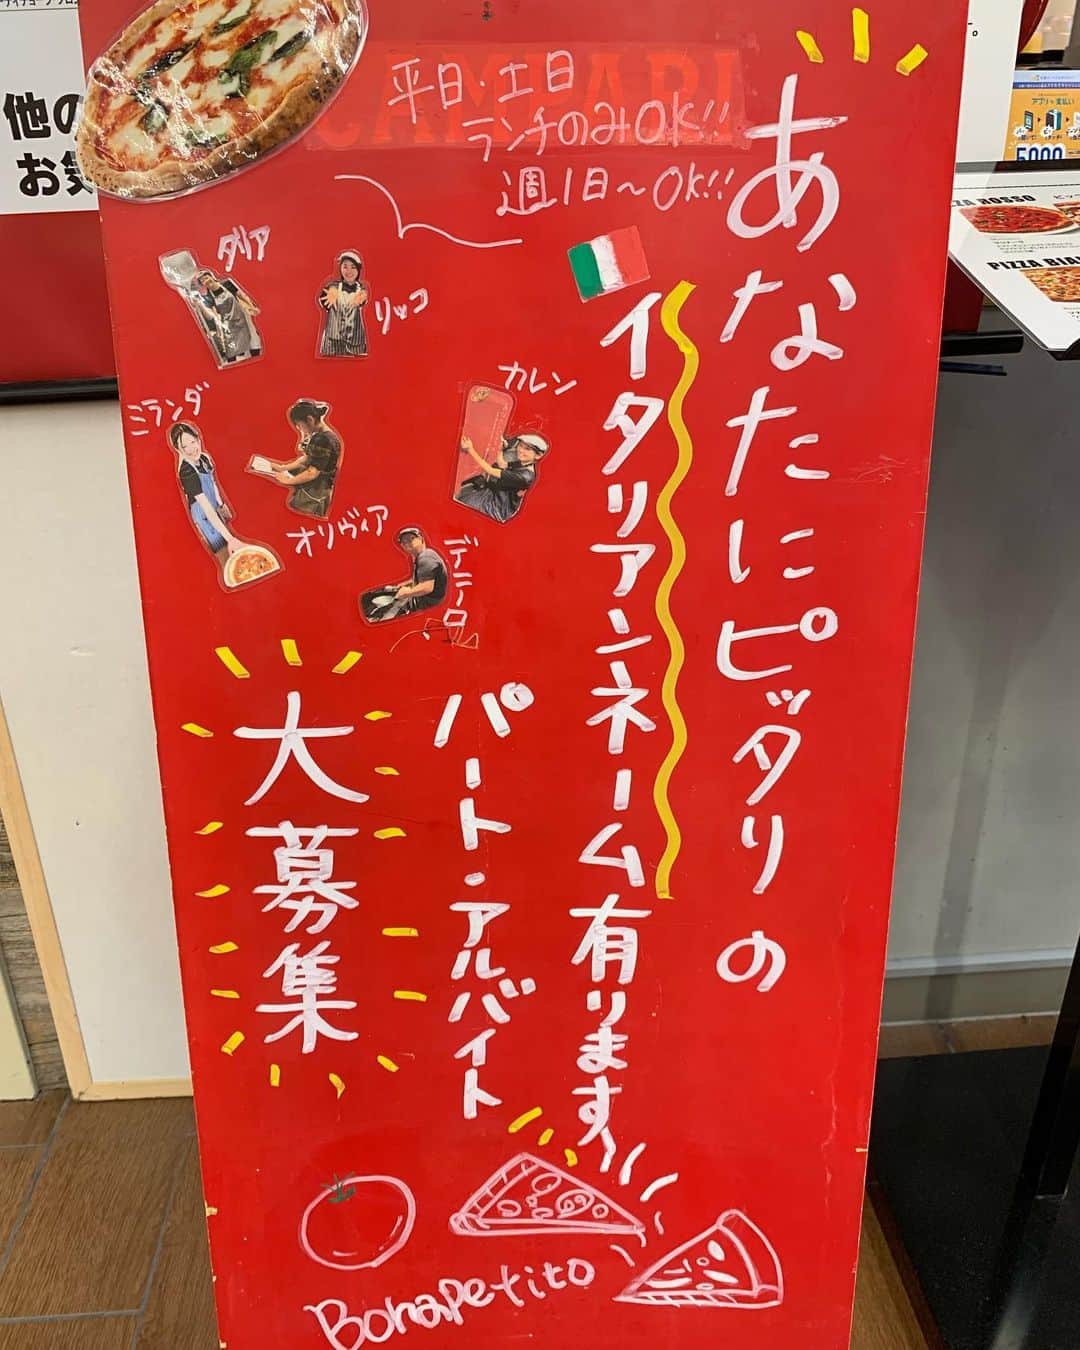 他の
お気
CAMPARI
平日・土日
ランチのみOK!!
週1日〜OK!!
あなたにピッタリの
イタリアンネーム有ります
パート・アルバイト
大募集
ダリア
リッコ
カレン
ミランダ
オリヴィア
デニーロ
Bonapetito
ROSSO
PIZZA BIAN
アプリで支払い
5000